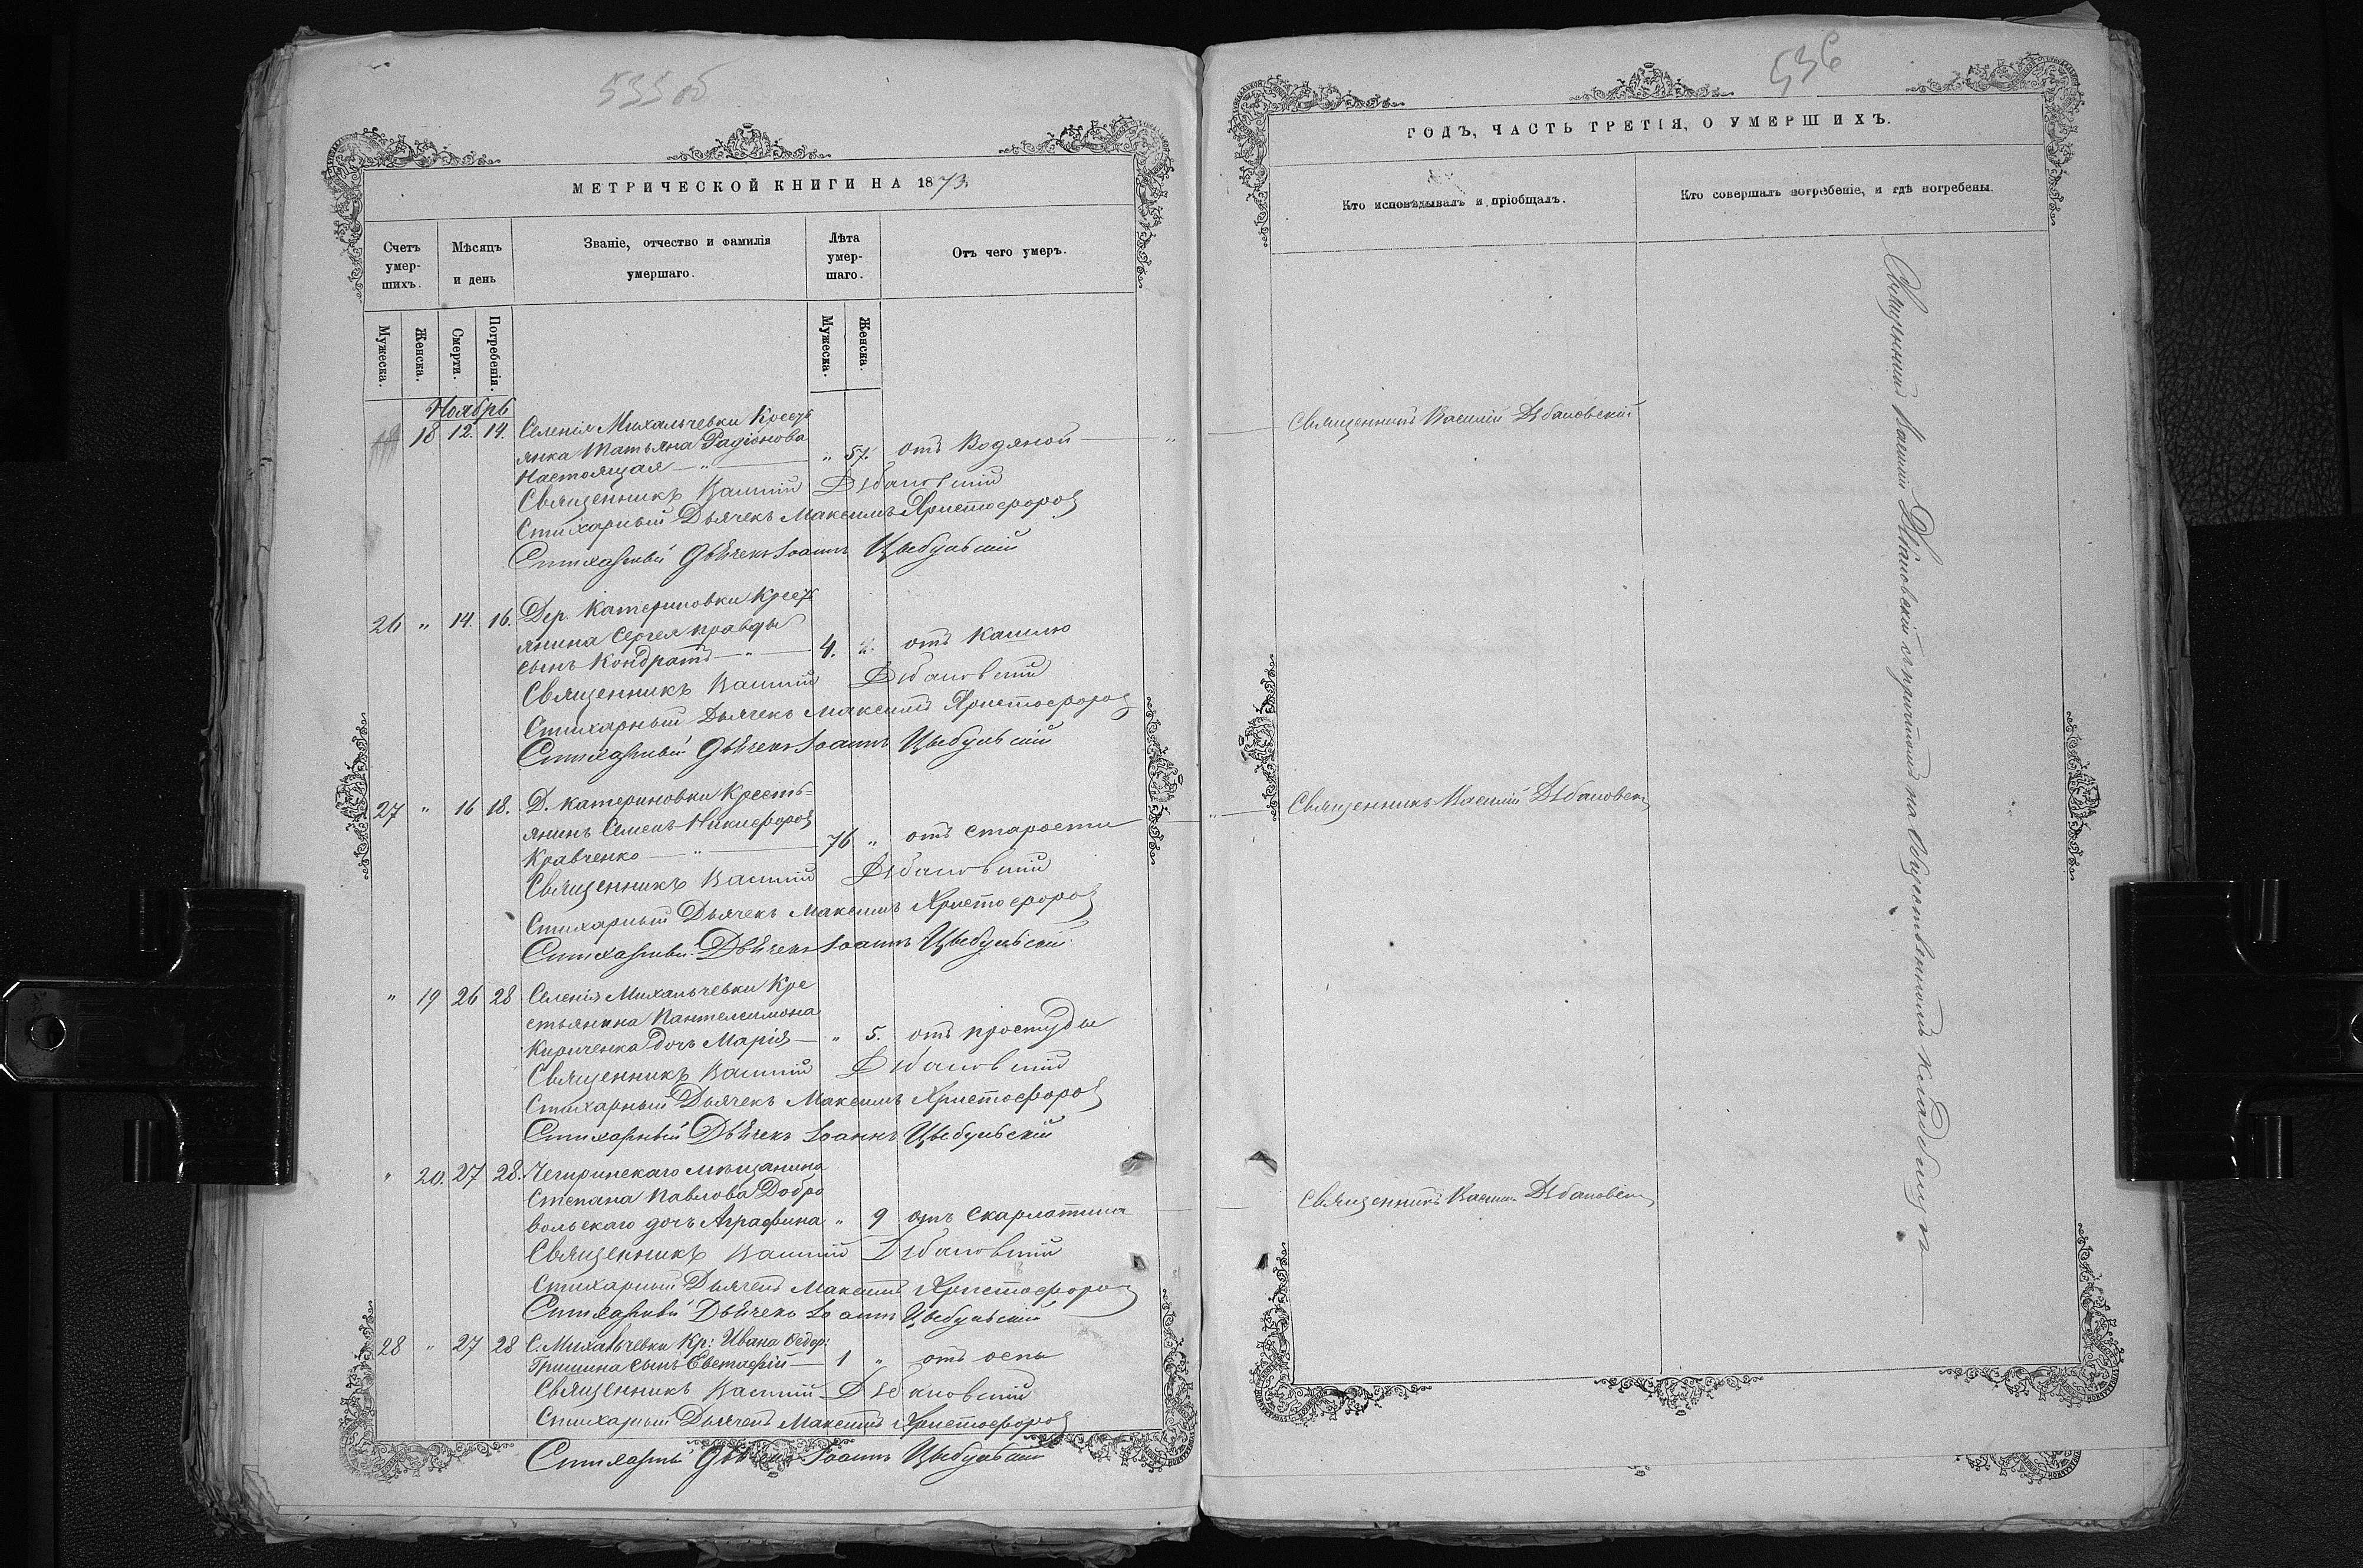 535об
МЕТРИЧЕСКОЙ КНИГИ НА 1873
Счетъ умер-шихъ.
Мѣсяцъ и день
Званіе, отчество и фамилія умершаго.
Лѣта умер-шаго.
Отъ чего умеръ.
Мужеска.
Женска.
Смерти.
Погребенія.
Мужеска.
Женска.
Ноябрь
18 12. 14. Селенія Михальчевки Кресть
янка Татьяна Радіонова
Настоящая — " — " 57. отъ Водяной
Священникъ Василій Дѣбановскій
Стихарный Дьячекъ Максимъ Христофоровъ
Стихарный Дьячекъ Іоаннъ Цыбульскій
26 " 14. 16. Дер. Катериновки Кресть
янина Сергея Правды
сынъ Кондратъ — " — 4. " отъ Кашлю
Священникъ Василій Дѣбановскій
Стихарный Дьячекъ Максимъ Христофоровъ
Стихарный Дьячекъ Іоаннъ Цыбульскій
27 " 16 18. Д. Катериновки Кресть-
янинъ Семенъ Никифоровъ
Кравченко — " — 76 " отъ старости
Священникъ Василій Дѣбановскій
Стихарный Дьячекъ Максимъ Христофоровъ
Стихарный Дьячекъ Іоаннъ Цыбульскій
" 19 26 28 Селенія Михальчевки Кре
стьянина Пантелеимона
Кириченка дочь Марія — " 5. отъ простуды
Священникъ Василій Дѣбановскій
Стихарный Дьячекъ Максимъ Христофоровъ
Стихарный Дьячекъ Іоаннъ Цыбульскій
" 20. 27 28. Чигиринскаго мѣщанина
Степана Павлова Добро
вольскаго дочь Аграфина " 9 отъ скарлатина
Священникъ Василій Дѣбановскій
Стихарный Дьячекъ Максимъ Христофоровъ
Стихарный Дьячекъ Іоаннъ Цыбульскій
28 " 27 28 С. Михальчевки Кр: Ивана Ѳедор:
Гришина сынъ Евстафій — 1 " отъ оспы
Священникъ Василій Дѣбановскій
Стихарный Дьячекъ Максимъ Христофоровъ
Стихарный Дьячекъ Іоаннъ Цыбульскій
536
ГОДЪ, ЧАСТЬ ТРЕТІЯ, О УМЕРШИХЪ.
Кто исповѣдывалъ и пріобщалъ.
Кто совершалъ погребеніе, и гдѣ погребены.
Священникъ Василій Дѣбановскій
Священникъ Василій Дѣбановскі
Священникъ Василій Дѣбановскі
Священникъ Василій Дѣбановскій съ причтомъ на Общественномъ кладбищѣ